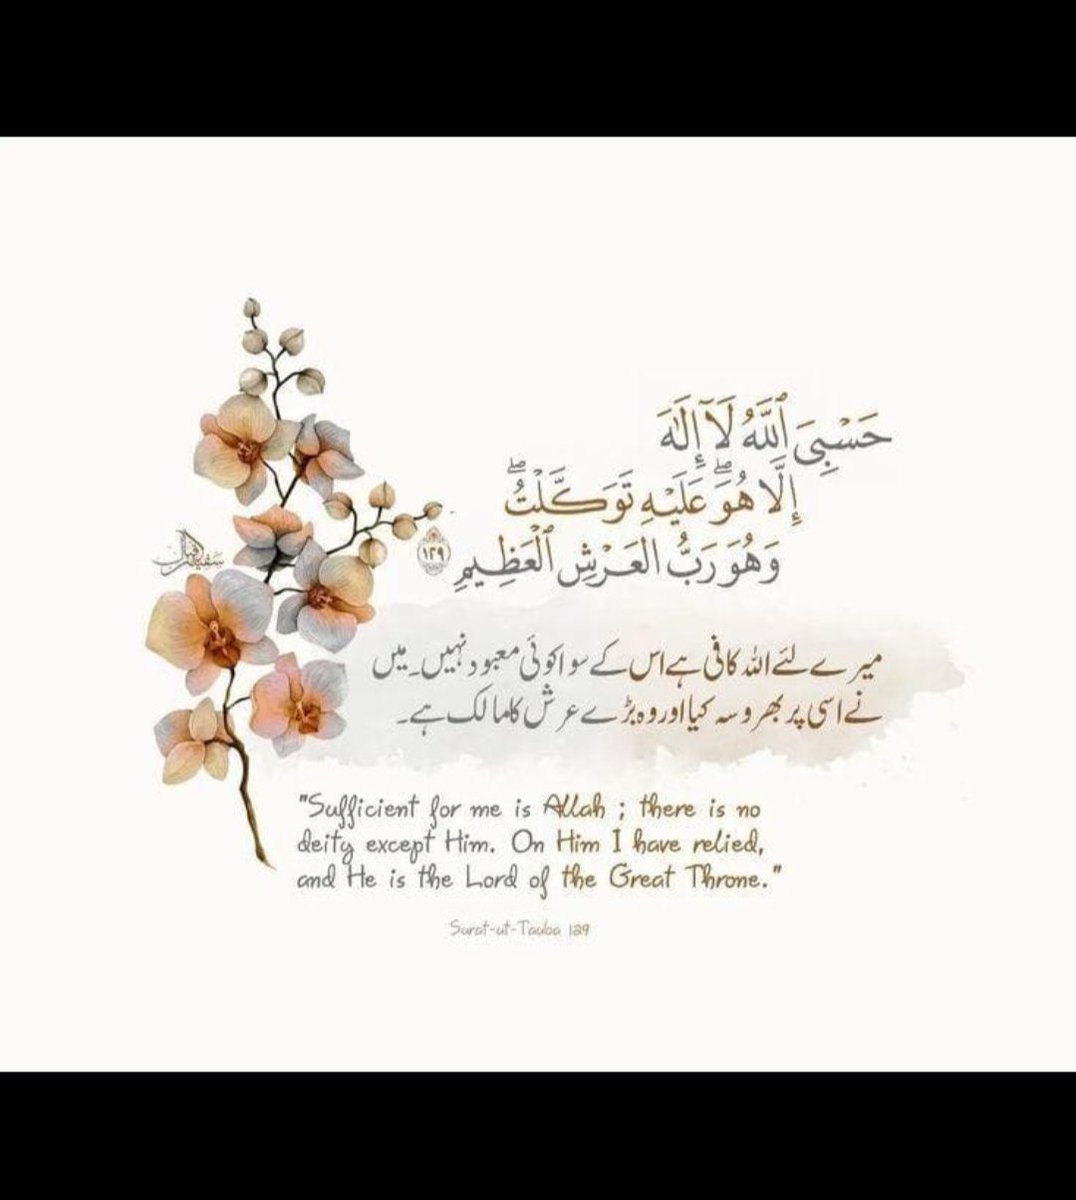 حَسْبِىَ ٱللَّهُ لَآ إِلَٰهَ
إِلَّا هُوَ ۖ عَلَيْهِ تَوَكَّلْتُ ۖ
وَهُوَ رَبُّ ٱلْعَرْشِ ٱلْعَظِيمِ ١٢٩
میرے لئے اللہ کافی ہے اس کے سوا کوئی معبود نہیں۔ میں
نے اسی پر بھروسہ کیا اور وہ بڑے عرش کا مالک ہے۔
"Sufficient for me is Allah ; there is no
deity except Him. On Him I have relied,
and He is the Lord of the Great Throne."
Surat-ut-Tauba 129